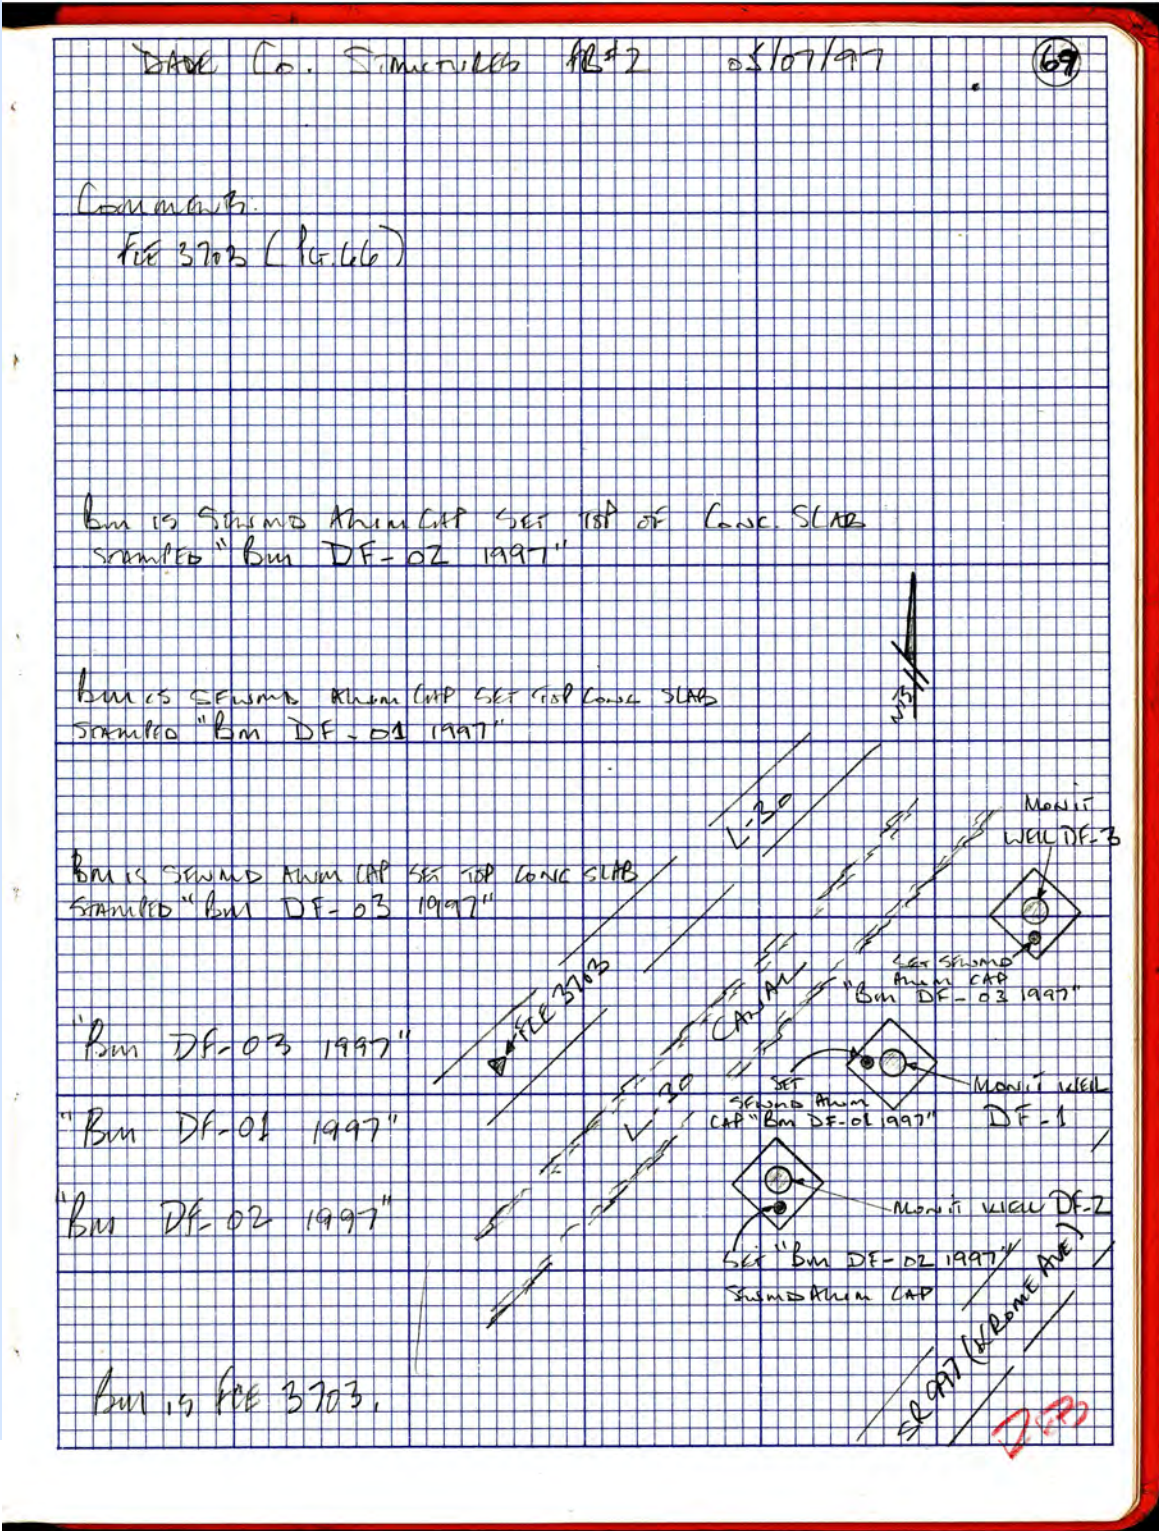 DADE Co. STRUCTURES FB#2 05/07/97 69
Comments.
FCE 3703 (PG.66)
BM IS SFWMD ALUM CAP SET TOP OF CONC. SLAB
STAMPED "BM DF-02 1997"
BM IS SFWMD ALUM CAP SET TOP CONC SLAB
STAMPED "BM DF-01 1997"
BM IS SFWMD ALUM CAP SET TOP CONC SLAB
STAMPED "BM DF-03 1997"
"BM DF-03 1997"
"BM DF-01 1997"
"BM DF-02 1997"
BM IS FCE 3703.
L-30
FCE 3703
L-30 CANAL
MONIT
WELL DF-3
SET SFWMD
ALUM CAP
"BM DF-03 1997"
SET
SFWMD ALUM
CAP "BM DF-01 1997"
MONIT WELL
DF-1
MONIT WELL DF-2
SET "BM DF-02 1997"
SFWMD ALUM CAP
SR 997 (KROME AVE)